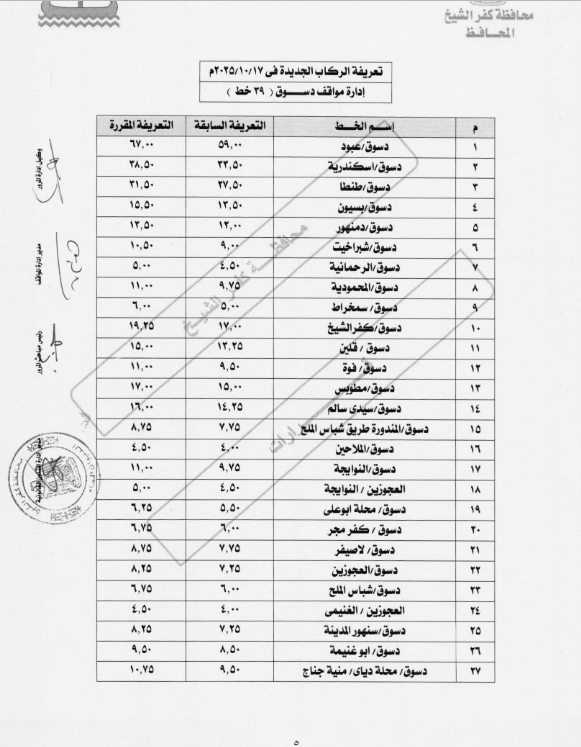 محافظة كفر الشيخ
المحافظ
تعريفة الركاب الجديدة فى ٢٠٢٥/١٠/١٧م
إدارة مواقف دسوق ( ٣٩ خط )
م إسم الخط التعريفة السابقة التعريفة المقررة
١ دسوق/عبود ٥٩,٠٠ ٦٧,٠٠
٢ دسوق/اسكندرية ٣٣,٥٠ ٣٨,٥٠
٣ دسوق/طنطا ٢٧,٥٠ ٣١,٥٠
٤ دسوق/بسيون ١٣,٥٠ ١٥,٥٠
٥ دسوق/دمنهور ١٢,٠٠ ١٣,٥٠
٦ دسوق/شبراخيت ٩,٠٠ ١٠,٥٠
٧ دسوق/الرحمانية ٤,٥٠ ٥,٠٠
٨ دسوق/المحمودية ٩,٧٥ ١١,٠٠
٩ دسوق/ سمخراط ٥,٠٠ ٦,٠٠
١٠ دسوق/كفرالشيخ ١٧,٠٠ ١٩,٢٥
١١ دسوق / قلين ١٣,٢٥ ١٥,٠٠
١٢ دسوق / فوة ٩,٥٠ ١١,٠٠
١٣ دسوق/مطوبس ١٥,٠٠ ١٧,٠٠
١٤ دسوق/سيدى سالم ١٤,٢٥ ١٦,٠٠
١٥ دسوق/المندورة طريق شباس الملح ٧,٧٥ ٨,٧٥
١٦ دسوق/الملاحين ٤,٠٠ ٤,٥٠
١٧ دسوق/النوايجة ٩,٧٥ ١١,٠٠
١٨ العجوزين / النوايجة ٤,٥٠ ٥,٠٠
١٩ دسوق/ محلة ابوعلى ٥,٥٠ ٦,٢٥
٢٠ دسوق / كفر مجر ٦,٠٠ ٦,٧٥
٢١ دسوق/ لاصيفر ٧,٧٥ ٨,٧٥
٢٢ دسوق/العجوزين ٧,٢٥ ٨,٢٥
٢٣ دسوق/شباس الملح ٦,٠٠ ٦,٧٥
٢٤ العجوزين / الغنيمى ٤,٠٠ ٤,٥٠
٢٥ دسوق/سنهور المدينة ٧,٢٥ ٨,٢٥
٢٦ دسوق/ ابو غنيمة ٨,٥٠ ٩,٥٠
٢٧ دسوق/ محلة دياى/ منية جناج ٩,٥٠ ١٠,٧٥
وكيل ادارة المرور
مدير ادارة المواقف
رئيس مباحث المرور
محافظة كفر الشيخ
٥